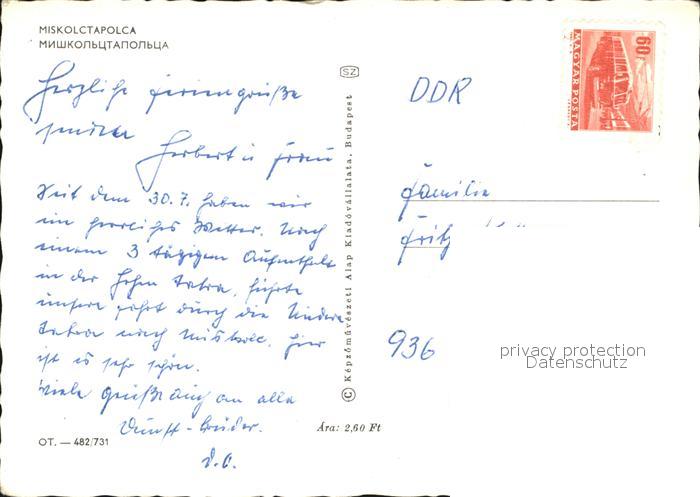 MISKOLCTAPOLCA
МИШКОЛЬЦТАПОЛЬЦА
Herzliche Feriengrüße
senden
Herbert u. Frau
Seit dem 30.7. haben wir
ein herrliches Wetter. Nach
einem 3 tägigem Aufenthalt
in der Hohen Tatra, führte
unsere Fahrt durch die Niedere
Tatra nach Miskolc. Hier
ist es sehr schön.
Viele Grüße auch an alle
D.O.
OT. — 482/731
Ára: 2,60 Ft
SZ
© Képzőművészeti Alap Kiadóvállalata, Budapest
60 f
MAGYAR POSTA
DDR
Familie
Fritz
936
privacy protection
Datenschutz